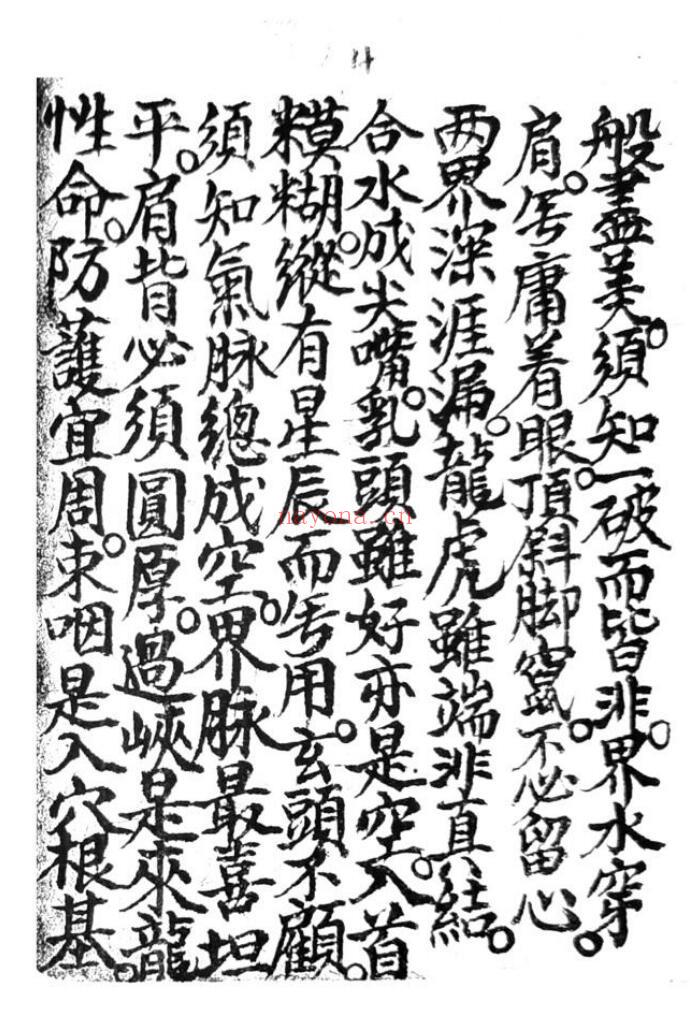 般盡美。須知一破而皆非。界水穿
肩。旡庸着眼。頂斜脚竄。不必留心。
两界深涯漏。龍虎雖端非真結。
合水成尖嘴。乳頭雖好亦是空。入首
糢糊。縱有星辰而旡用。玄頭不顧。
須知氣脉總成空。界脉最喜坦
平。肩背必須圓厚。過峽是來龍
性命。防護宜周。束咽是入穴根基。
nayona.cn